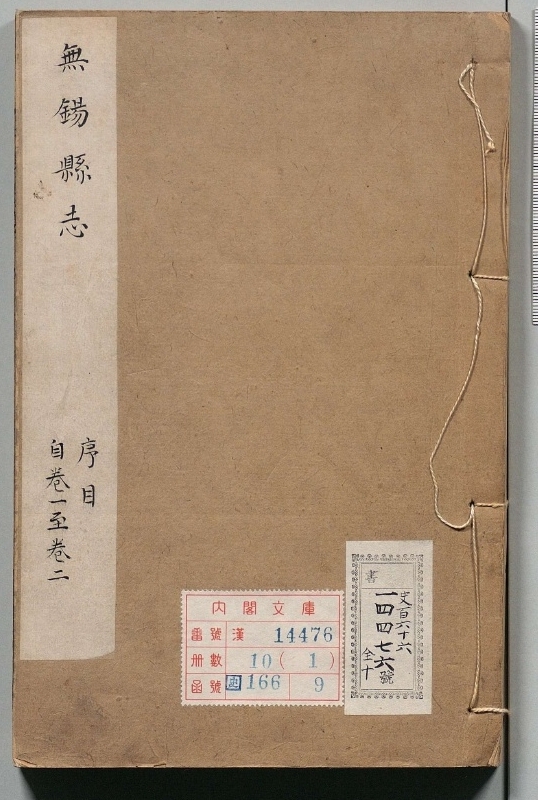 無錫縣志
序目
自卷一至卷二
內閣文庫
番號 漢 14476
冊數 10(1)
函號 史 166 9
書
史百六十六
一四四七六號
全十